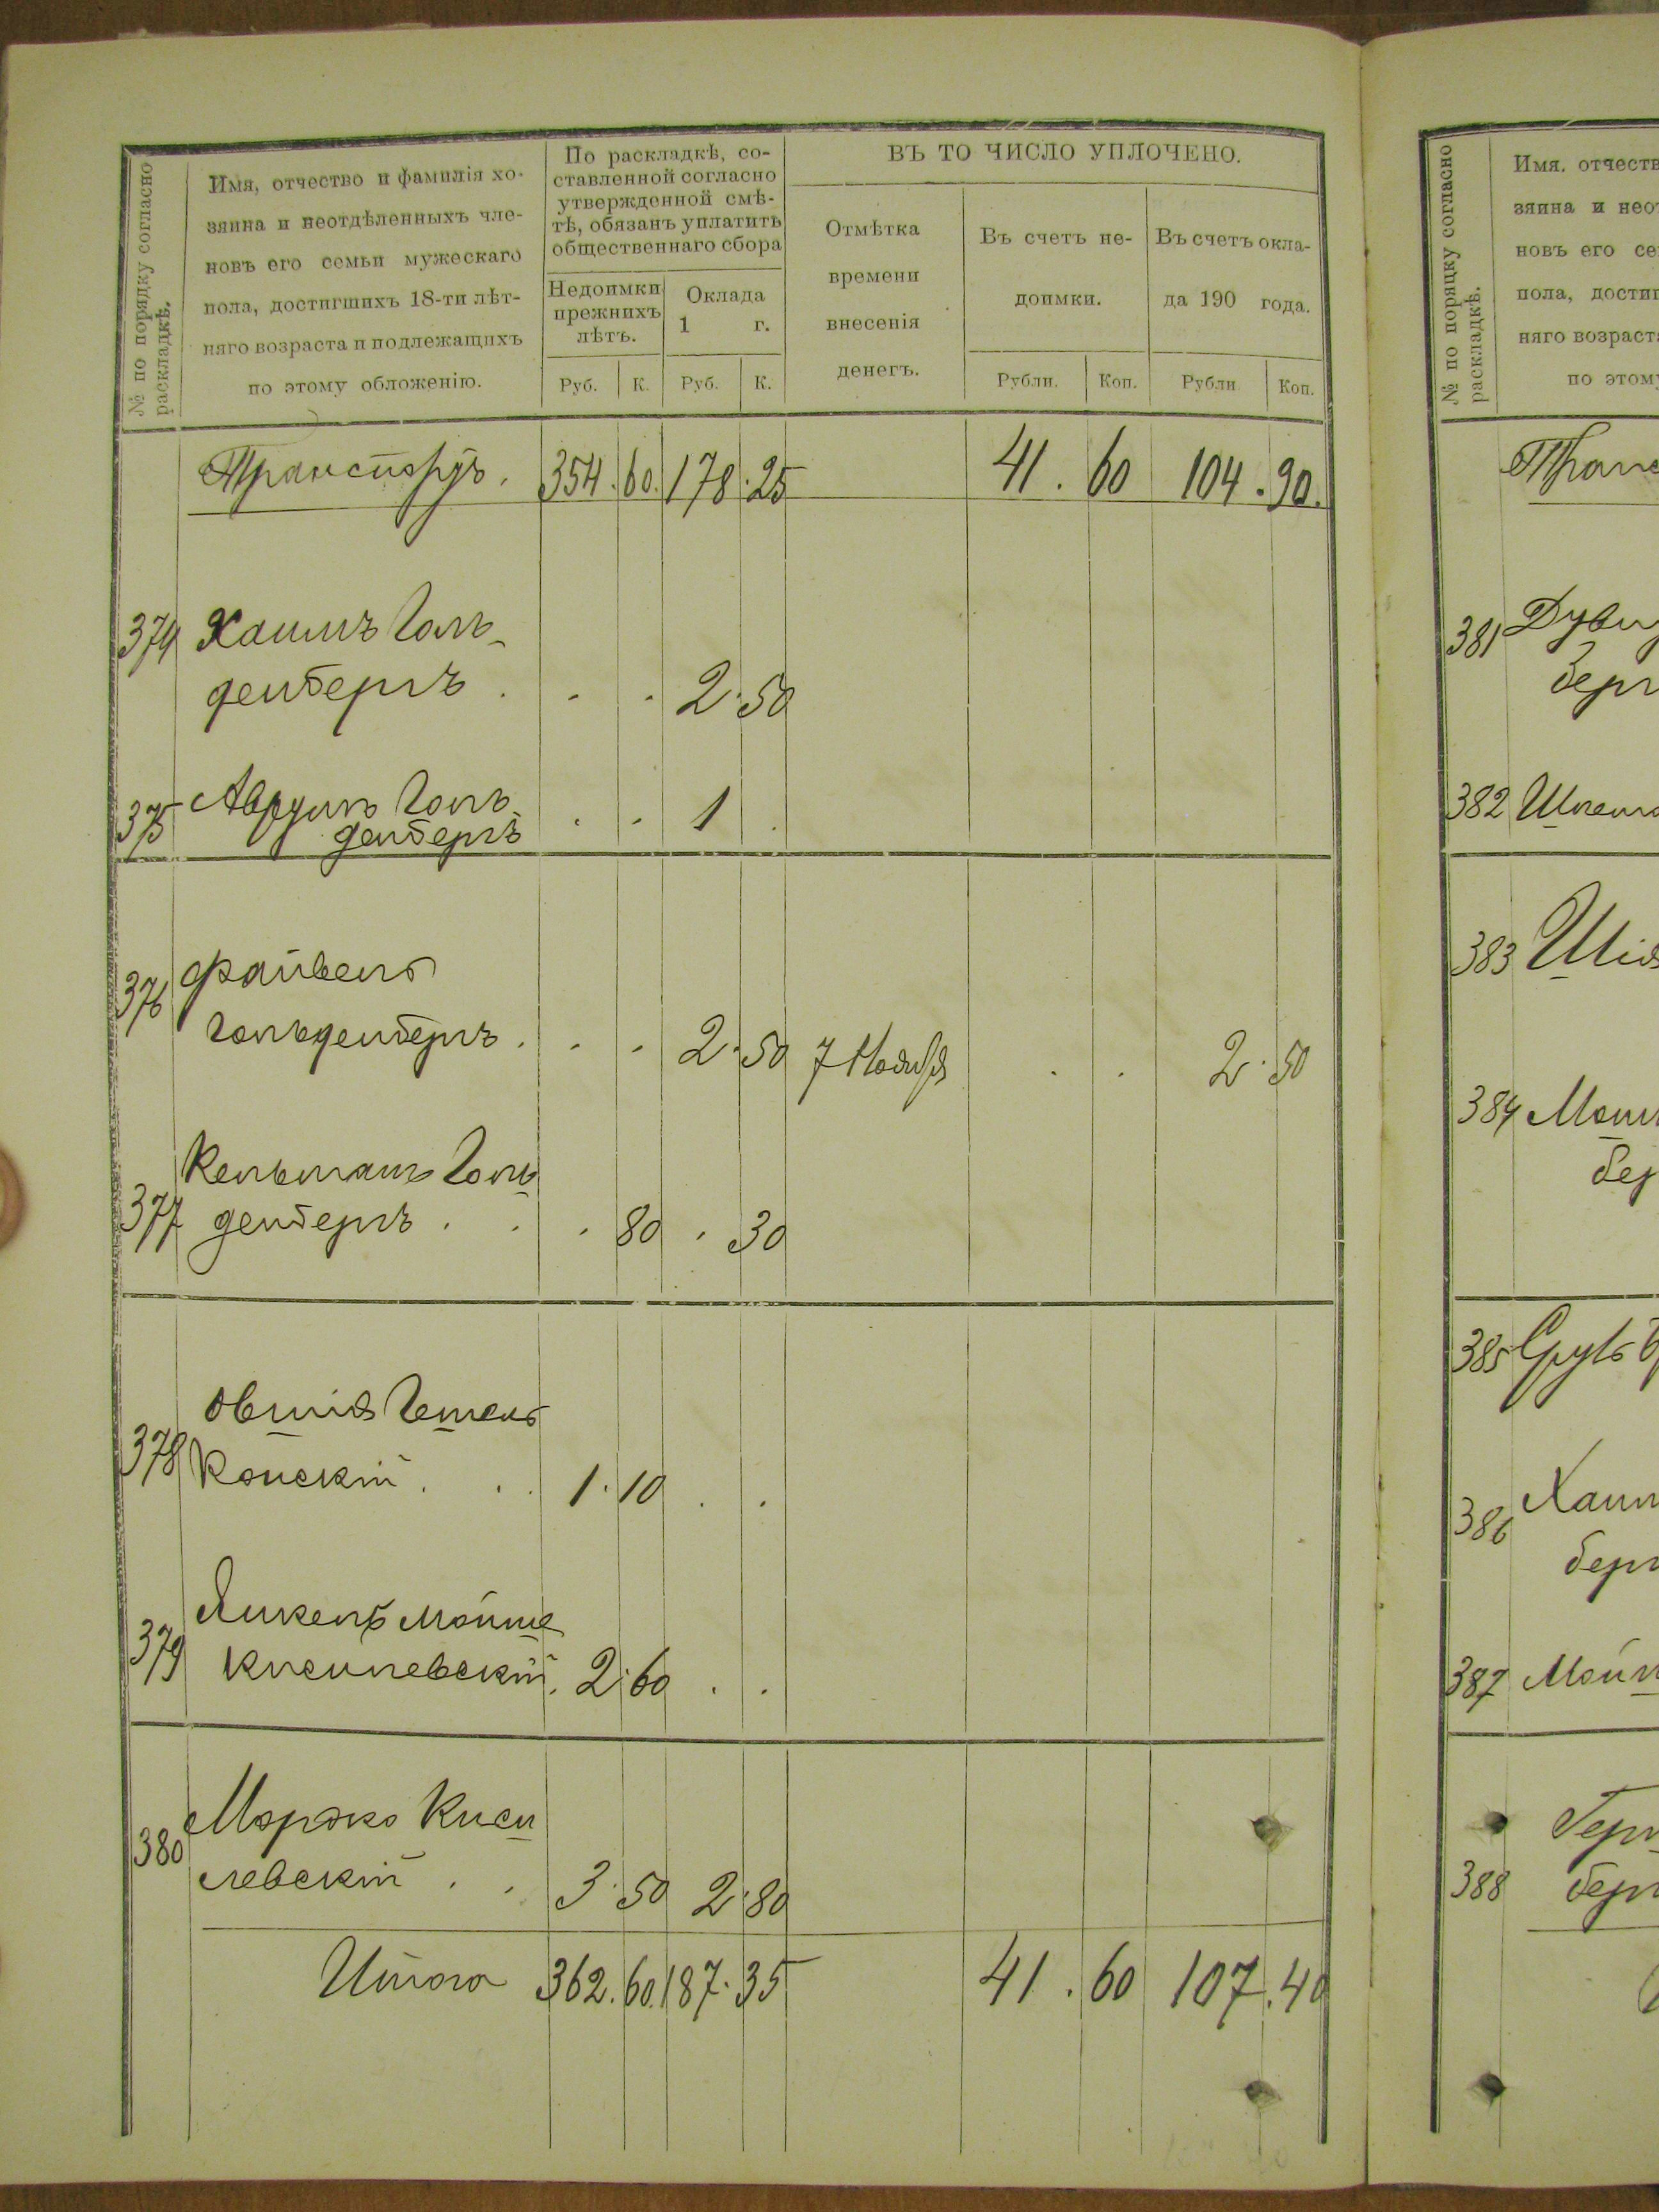 № по порядку согласно
раскладкѣ.
Имя, отчество и фамилія хо-
зяина и неотдѣленныхъ чле-
новъ его семьи мужескаго
пола, достигшихъ 18-ти лѣт-
няго возраста и подлежащихъ
по этому обложенію.
По раскладкѣ, со-
ставленной согласно
утвержденной смѣ-
тѣ, обязанъ уплатить
общественнаго сбора
Недоимки
прежнихъ
лѣтъ.
Оклада
1 г.
Руб. К. Руб. К.
ВЪ ТО ЧИСЛО УПЛОЧЕНО.
Отмѣтка
времени
внесенія
денегъ.
Въ счетъ не-
доимки.
Въ счетъ окла-
да 190 года.
Рубли. Коп. Рубли Коп.
Транспортъ. 354. 60. 178. 25 41. 60 104. 90.
374 ХаимъГоль-
денбергъ . . . 2. 50
375 Аврумъ Голь-
денбергъ . . 1 .
376 Файвель
Гольденбергъ . . . 2. 50 7 Ноября . . 2. 50
377 КельманъГоль-
денбергъ . . . 80 . 30
378 Овшія
Конскій . . . 1. 10 . .
379 Янкель Мойше
Кисилевскій. 2. 60 . .
380 Мордко Киси
левскій . . 3. 50 2. 80
Итого 362. 60. 187. 35 41. 60 107. 40
№ по порядку согласно
раскладкѣ.
Имя, отчеств
зяина и неот
новъ его се
пола, достиг
няго возраст
по этому
Транс
381
берг
382
383
384
бер
385
386 Хаим
берг
387 Мойш
388
берг